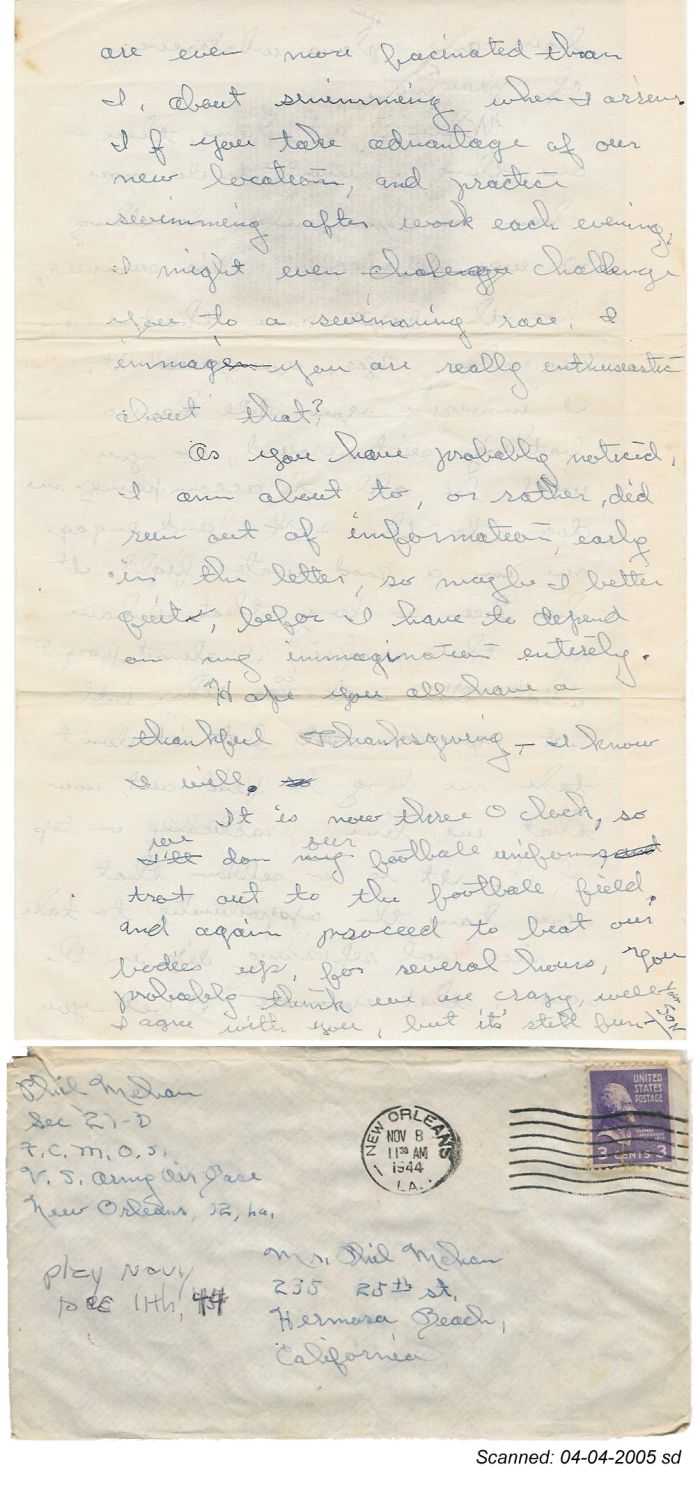 are even more facinated than
I, about swimming when I arrive.
If you take advantage of our
new location, and practice
swimming after work each evening,
I might even challenge
you to a swimming race. I
immagen you are really enthuseastic
about that?
As you have probably noticed,
I am about to, or rather, did
run out of information, early
in the letter, so maybe I better
quit, befor I have to depend
on my immagination entirely.
Hope you all have a
thankful Thanksgiving — I know
I will.
It is now three O clock, so
we our
I'll don my football uniforms and
trot out to the football field,
and again proceed to beat our
bodies up, for several hours, You
probably think we are crazy, well
I agree with you, but it's still fun—
Your SON
Phil Mehan
Sec 21-D
F.C.M.O.S.
U.S. Army Air Base
New Orleans, 12, La.
NEW ORLEANS
NOV 8
11 30 AM
1944
LA.
UNITED
STATES
POSTAGE
3 CENTS 3
Mr. Phil Mehan
235 25th st.
Hermosa Beach,
California
Play NAVY
DEC 11th, 44
Scanned: 04-04-2005 sd